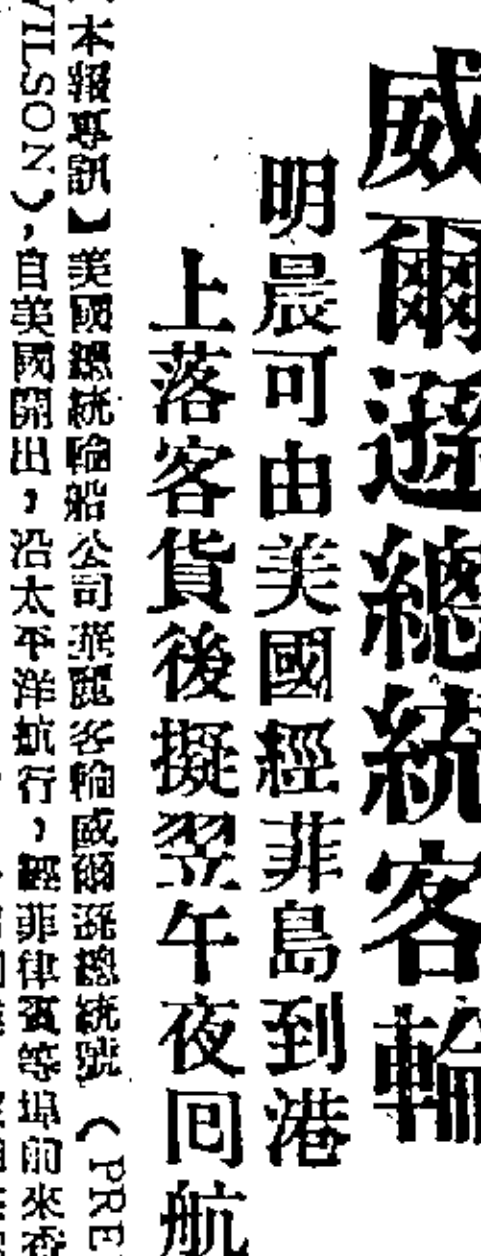 威爾遜總統客輪
明晨可由美國經菲島到港
上落客貨後擬翌午夜囘航
本報專訊】美國總統輪船公司華麗客輪威爾遜總統號（PRE
WILSON），自美國開出，沿太平洋航行，經菲律賓等埠前來香